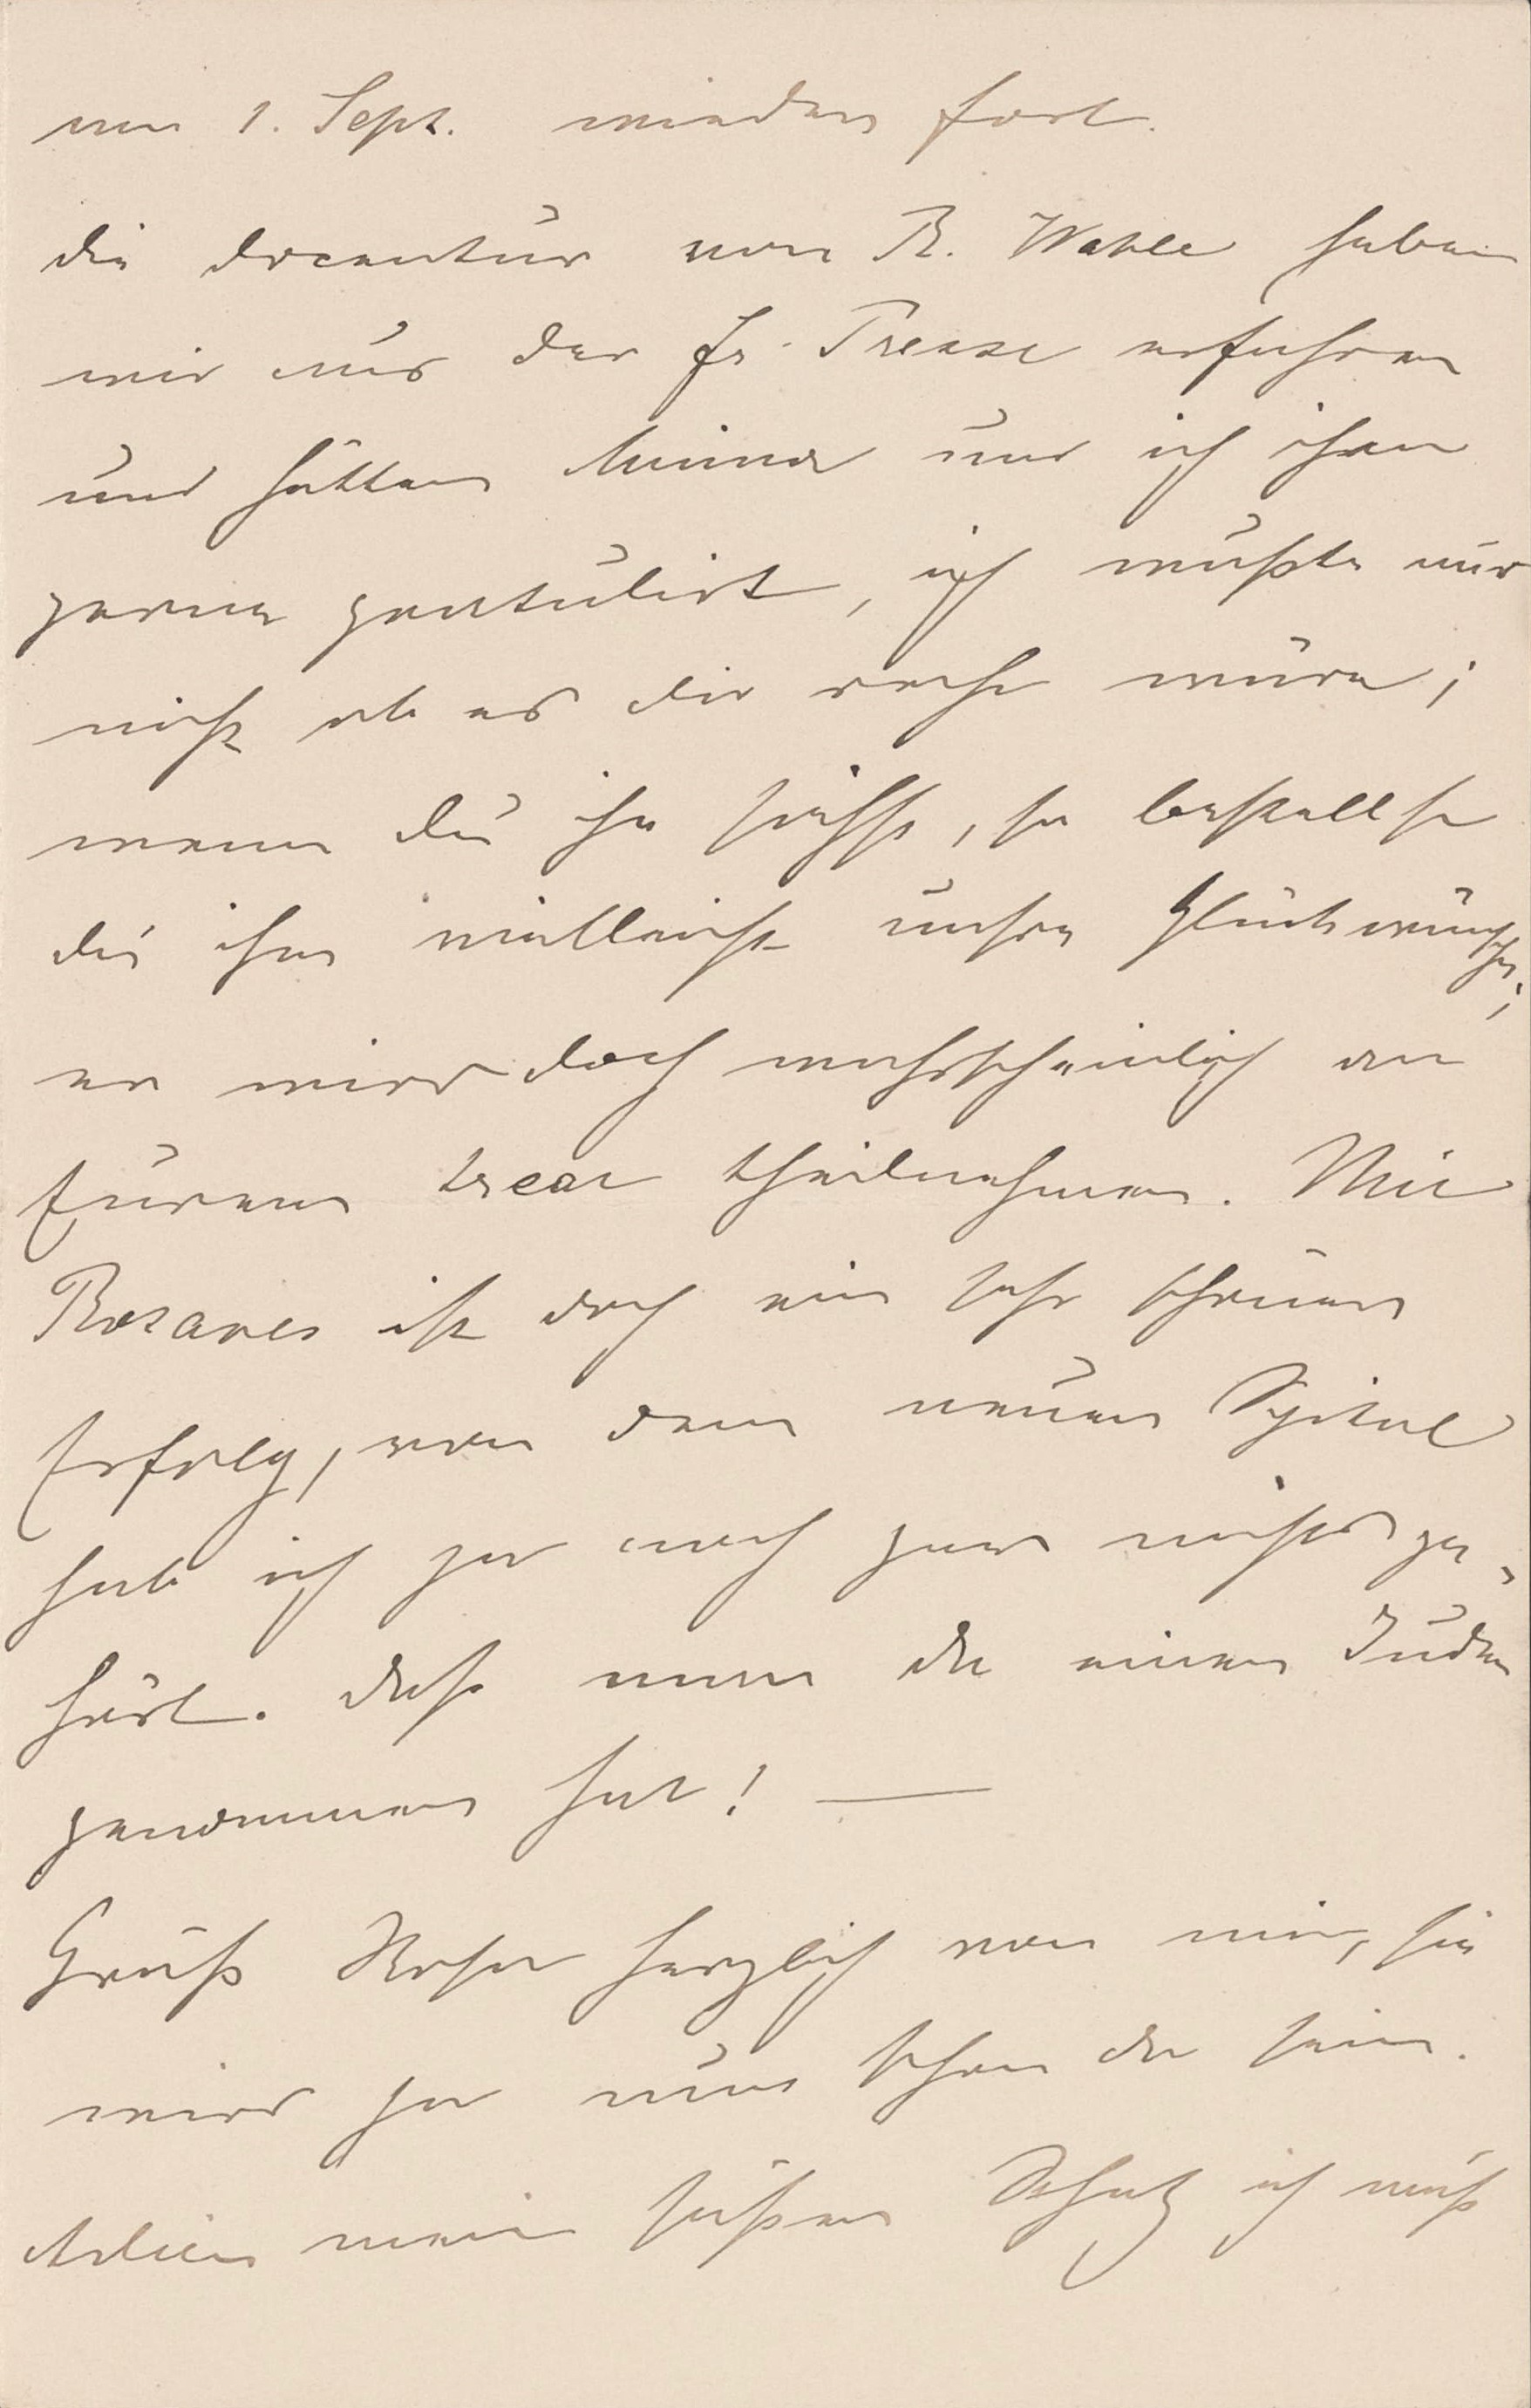 am 1. Sept. wieder fort.
die Docentur von R. Wahle haben
wir aus der fr. Presse erfahren
und hätten Minna und ich ihm
gerne gratulirt, ich wußte nur
nicht ob es dir recht wäre;
wenn du ihn siehst, so bestellst
du ihm vielleicht unsre Glückwünsche;
er wird doch wahrscheinlich an
Eurem treat theilnehmen. Mit
Rosanes ist doch ein sehr schöner
Erfolg, von dem neuen Spital
hab ich ja noch gar nichts ge-
hört. daß man da einen Juden
genommen hat! —
Grüß Rosa herzlich von mir, sie
wird ja nun schon da sein.
Adieu mein süßer Schatz ich muß